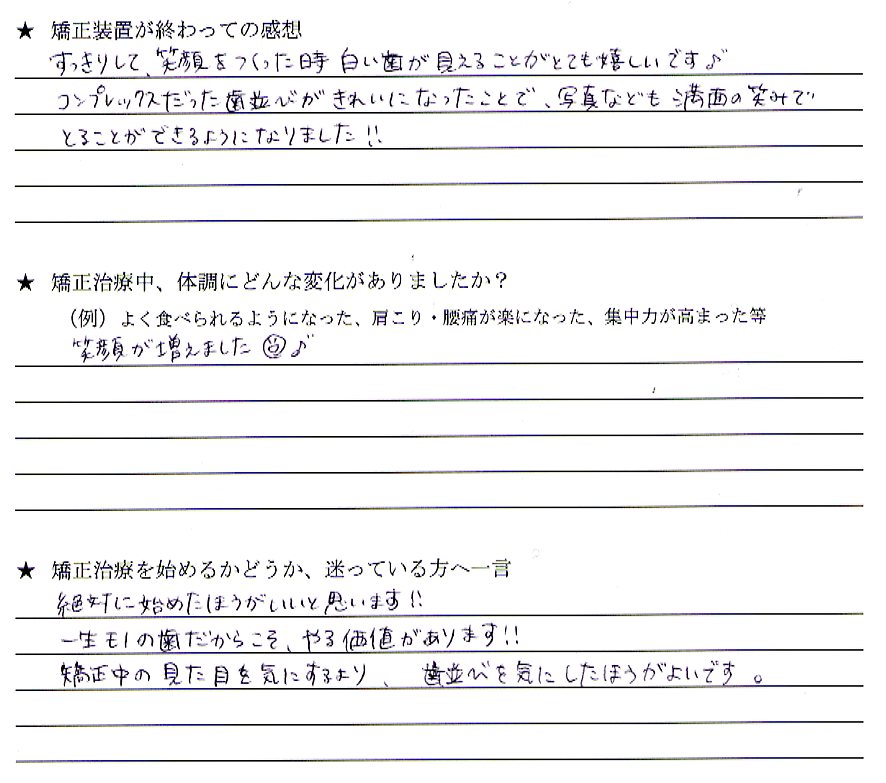 ★ 矯正装置が終わっての感想
すっきりして、笑顔をつくった時 白い歯が見えることがとても嬉しいです♪
コンプレックスだった歯並びがきれいになったことで、写真なども満面の笑みで
とることができるようになりました!!
★ 矯正治療中、体調にどんな変化がありましたか？
（例）よく食べられるようになった、肩こり・腰痛が楽になった、集中力が高まった等
笑顔が増えました☺♪
★ 矯正治療を始めるかどうか、迷っている方へ一言
絶対に始めたほうがいいと思います!!
一生モノの歯だからこそ、やる価値があります!!
矯正中の見た目を気にするより、歯並びを気にしたほうがよいです。